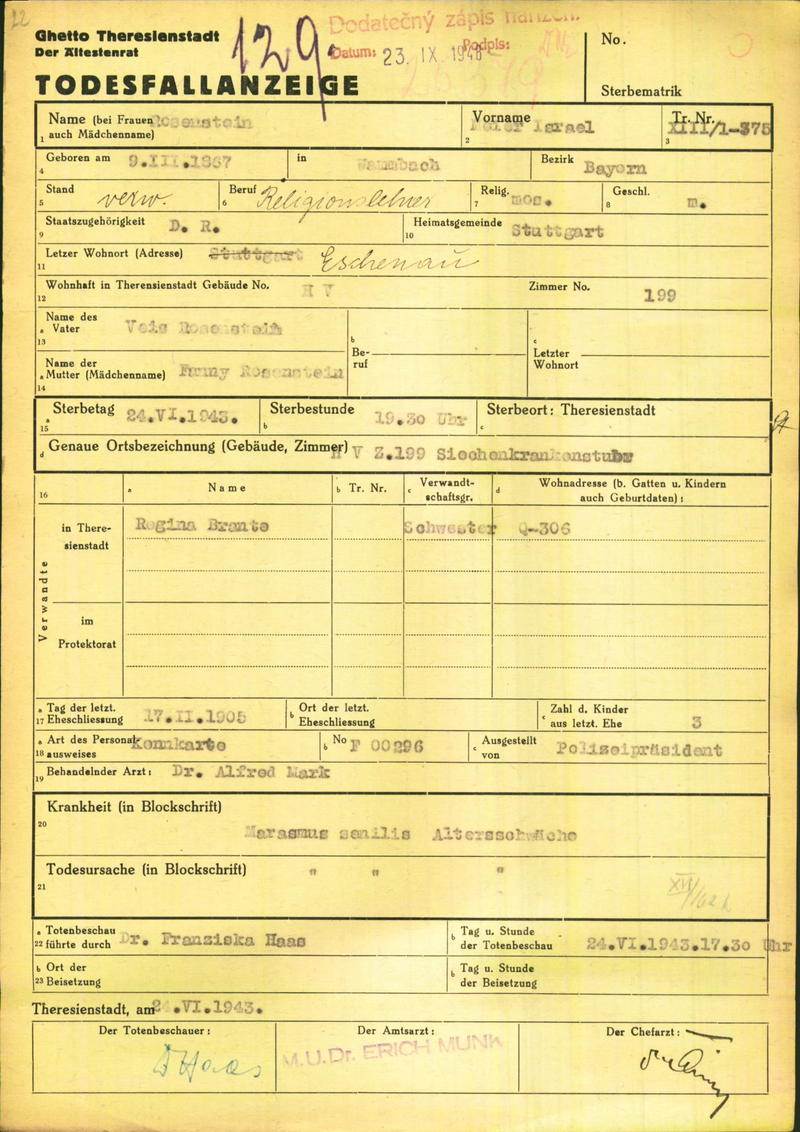 22
Ghetto Theresienstadt
Der Ältestenrat
129
Dodatečný zápis
Datum: 23. IX. 1948 Podpis:
TODESFALLANZEIGE
No.
Sterbematrik
Name (bei Frauen auch Mädchenname) Rosenstein
1
Vorname Israel
2
Tr. Nr. XIII/1-375
3
Geboren am 9.III.1867
4
in
Bezirk Bayern
Stand verw.
5
Beruf Religionslehrer
6
Relig. mos.
7
Geschl. m.
8
Staatszugehörigkeit D. R.
9
Heimatsgemeinde Stuttgart
10
Letzer Wohnort (Adresse) Stuttgart Eschenau
11
Wohnhaft in Theresienstadt Gebäude No.
12
Zimmer No. 199
Name des
a Vater Veis Rosenstein
13
b
Be-
ruf
c
Letzter
Wohnort
Name der
a Mutter (Mädchenname) Fanny Rosenstein
14
a Sterbetag 24.VI.1943.
15
b Sterbestunde 19.30 Uhr
c Sterbeort: Theresienstadt
d Genaue Ortsbezeichnung (Gebäude, Zimmer) V Z.199 Siechenkrankenstube
16
a Name
b Tr. Nr.
c Verwandt-
schaftsgr.
d Wohnadresse (b. Gatten u. Kindern
auch Geburtdaten):
Verwandte
in There-
sienstadt
Regina Schwester Q-306
im
Protektorat
a Tag der letzt.
17 Eheschliessung 17.II.1905
b Ort der letzt.
Eheschliessung
c Zahl d. Kinder
aus letzt. Ehe 3
a Art des Personal-
18 ausweises Kennkarte
b No F 00296
c Ausgestellt
von Polizeipräsident
19 Behandelnder Arzt: Dr. Alfred Mark
Krankheit (in Blockschrift)
20
Marasmus senilis Altersschwäche
Todesursache (in Blockschrift) " " "
21
a Totenbeschau
22 führte durch Dr. Franziska Haas
b Tag u. Stunde
der Totenbeschau 24.VI.1943.17.30 Uhr
b Ort der
23 Beisetzung
b Tag u. Stunde
der Beisetzung
Theresienstadt, am .VI.1943.
Der Totenbeschauer:
Haas
Der Amtsarzt:
M.U.Dr. ERICH MUNK
Der Chefarzt: